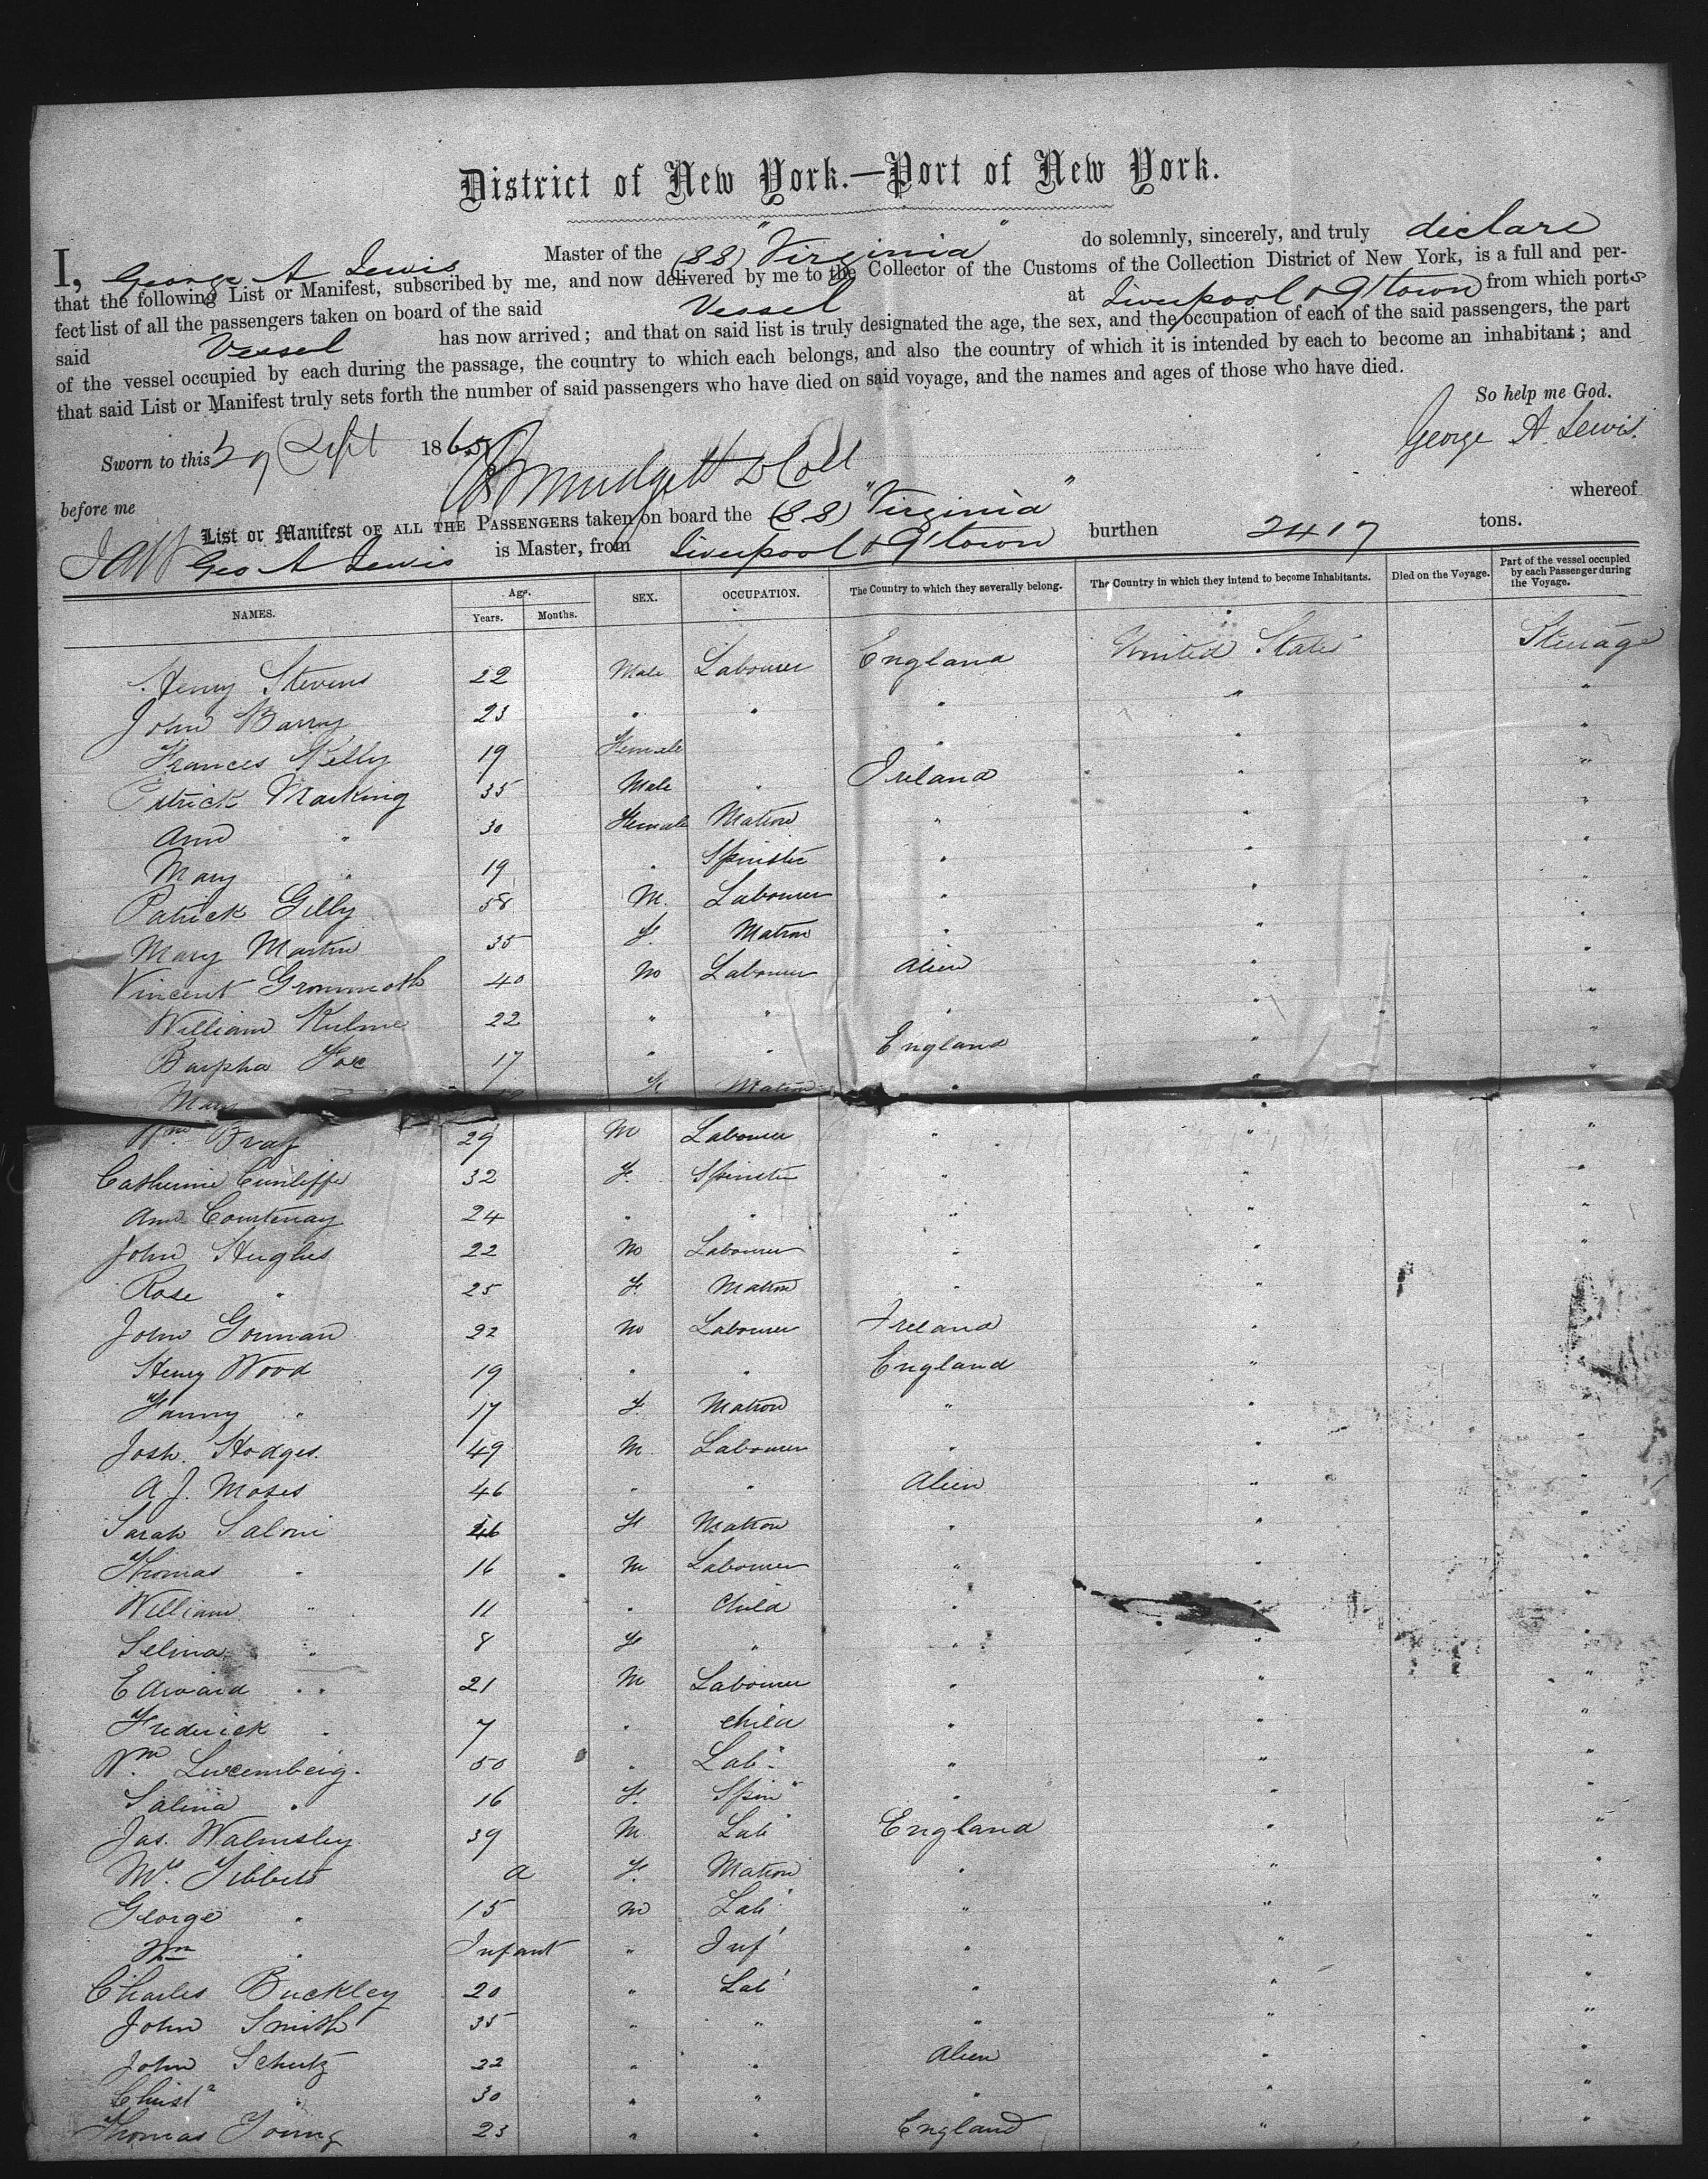 District of New York.—Port of New York.
I, George A Lewis Master of the (SS) "Virginia" do solemnly, sincerely, and truly declare
that the following List or Manifest, subscribed by me, and now delivered by me to the Collector of the Customs of the Collection District of New York, is a full and per-
fect list of all the passengers taken on board of the said Vessel at Liverpool & Q'town from which ports
said Vessel has now arrived; and that on said list is truly designated the age, the sex, and the occupation of each of the said passengers, the part
of the vessel occupied by each during the passage, the country to which each belongs, and also the country of which it is intended by each to become an inhabitant; and
that said List or Manifest truly sets forth the number of said passengers who have died on said voyage, and the names and ages of those who have died.
So help me God.
George A. Lewis.
Sworn to this Sept 1865
before me
List or Manifest OF ALL THE PASSENGERS taken on board the (SS) "Virginia" whereof
Geo A Lewis is Master, from Liverpool & Q'town burthen 2417 tons.
NAMES. Age. Years. Months. SEX. OCCUPATION. The Country to which they severally belong. The Country in which they intend to become Inhabitants. Died on the Voyage. Part of the vessel occupied by each Passenger during the Voyage.
Henry Stevens 22 Male Labourer England United States Steerage
John Barry 23 " " " " "
Frances Kelly 19 Female " " "
Patrick Marking 35 Male " Ireland " "
Ann " 30 Female Matron " " "
Mary " 19 " Spinster " " "
Patrick Gilly 58 M. Labourer " " "
Mary Martin 35 F. Matron " " "
Vincent 40 M Labourer Alien " "
William 22 " " " " "
Fox 17 " " England " "
Mary F Matron " " "
Wm Bray 29 M Labourer " " "
Catherine Cunliffe 32 F. Spinster " " "
Ann Courtenay 24 " " " " "
John Hughes 22 M Labourer " " "
Rose " 25 F. Matron " "
John Gorman 22 M Labourer Ireland "
Henry Wood 19 " " England "
Fanny " 17 F. Matron " "
Josh. Hodges. 49 M. Labourer " " "
A. J. Moses 46 " " Alien " "
Sarah Saloni F Matron " " "
Thomas " 16 M Labourer " " "
William " 11 " Child " " "
Selina " 8 F " " " "
Edward " 21 M Labourer " " "
Frederick " 7 " Child " " "
Wm Luxemberg. 50 " Lab" " " "
Salina " 16 F. Spin" " " "
Jas. Walmsley 39 M. Lab England " "
Mrs. Tibbets a F. Matron " " "
George " 15 M Lab' " " "
Wm " Infant " Inf' " " "
Charles Buckley 20 " Lab' " " "
John Smith 35 " " " " "
John Schutz 22 " " Alien " "
Christ " 30 " " " " "
Thomas Young 23 " " England " "